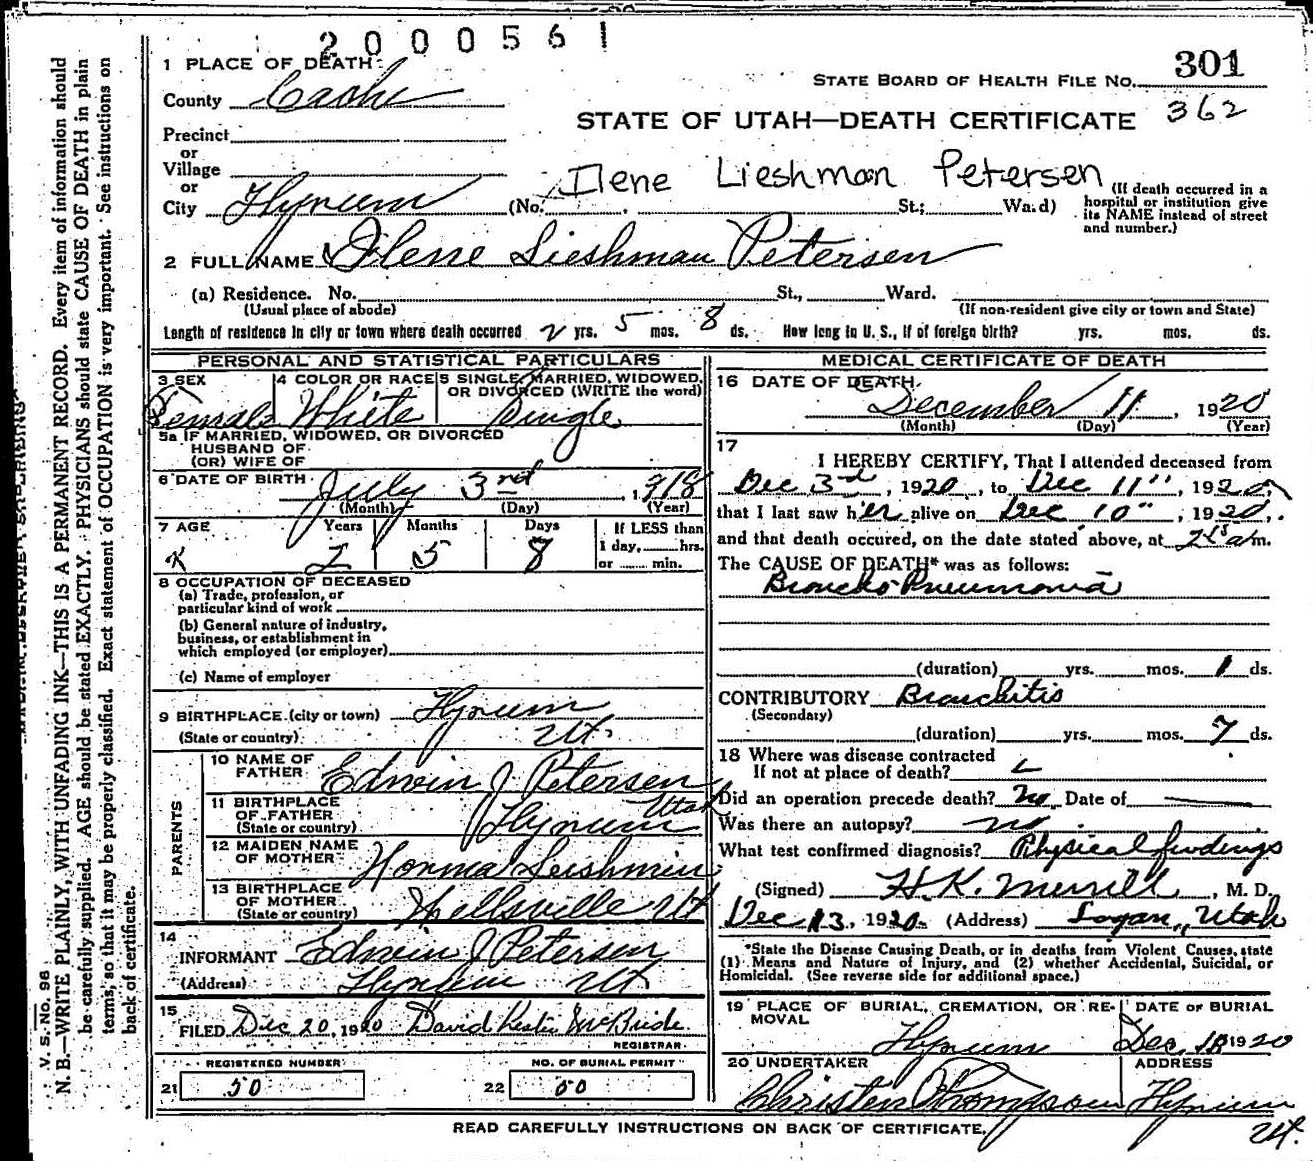 2000561
1 PLACE OF DEATH
STATE BOARD OF HEALTH FILE NO. 301
County Cache
362
STATE OF UTAH—DEATH CERTIFICATE
Precinct
or
Village
or
Ilene Lieshman Petersen
City Hyrum (No. St.; Ward)
(If death occurred in a hospital or institution give its NAME instead of street and number.)
2 FULL NAME Ilene Lieshman Petersen
(a) Residence. No. St., Ward.
(Usual place of abode) (If non-resident give city or town and State)
Length of residence in city or town where death occurred 2 yrs. 5 mos. 8 ds. How long in U. S., if of foreign birth? yrs. mos. ds.
PERSONAL AND STATISTICAL PARTICULARS
3 SEX Female
4 COLOR OR RACE White
5 SINGLE, MARRIED, WIDOWED, OR DIVORCED (WRITE the word) Single
5a IF MARRIED, WIDOWED, OR DIVORCED
HUSBAND OF
(OR) WIFE OF
6 DATE OF BIRTH July 3rd, 1918
(Month) (Day) (Year)
7 AGE Years Months Days If LESS than
2 5 8 1 day, hrs.
or min.
8 OCCUPATION OF DECEASED
(a) Trade, profession, or
particular kind of work
(b) General nature of industry,
business, or establishment in
which employed (or employer)
(c) Name of employer
9 BIRTHPLACE (city or town) Hyrum
(State or country) Ut.
PARENTS
10 NAME OF FATHER Edwin J Petersen
11 BIRTHPLACE OF FATHER (State or country) Hyrum Utah
12 MAIDEN NAME OF MOTHER Norma Leishman
13 BIRTHPLACE OF MOTHER (State or country) Wellsville Ut
14
INFORMANT Edwin J Petersen
(Address) Hyrum Ut
15
FILED Dec 20, 1920 David Leslie McBride
REGISTRAR
REGISTERED NUMBER NO. OF BURIAL PERMIT
21 50 22 50
MEDICAL CERTIFICATE OF DEATH
16 DATE OF DEATH
December 11, 1920
(Month) (Day) (Year)
17
I HEREBY CERTIFY, That I attended deceased from
Dec 3rd, 1920, to Dec 11", 1920,
that I last saw her alive on Dec 10", 1920,
and that death occured, on the date stated above, at 2 15 a m.
The CAUSE OF DEATH* was as follows:
Broncho Pneumonia
(duration) yrs. mos. 1 ds.
CONTRIBUTORY Bronchitis
(Secondary)
(duration) yrs. mos. 7 ds.
18 Where was disease contracted
If not at place of death?
Did an operation precede death? No Date of
Was there an autopsy? no
What test confirmed diagnosis? Physical findings
(Signed) H.K. Merrill, M. D.
Dec 13, 1920. (Address) Logan, Utah
*State the Disease Causing Death, or in deaths from Violent Causes, state
(1) Means and Nature of Injury, and (2) whether Accidental, Suicidal, or
Homicidal. (See reverse side for additional space.)
19 PLACE OF BURIAL, CREMATION, OR REMOVAL Hyrum
DATE OF BURIAL Dec. 1920
20 UNDERTAKER Christen Thompson
ADDRESS Hyrum Ut.
READ CAREFULLY INSTRUCTIONS ON BACK OF CERTIFICATE.
V. S. No. 98
N. B.—WRITE PLAINLY, WITH UNFADING INK—THIS IS A PERMANENT RECORD. Every item of information should
be carefully supplied. AGE should be stated EXACTLY. PHYSICIANS should state CAUSE OF DEATH in plain
terms, so that it may be properly classified. Exact statement of OCCUPATION is very important. See instructions on
back of certificate.